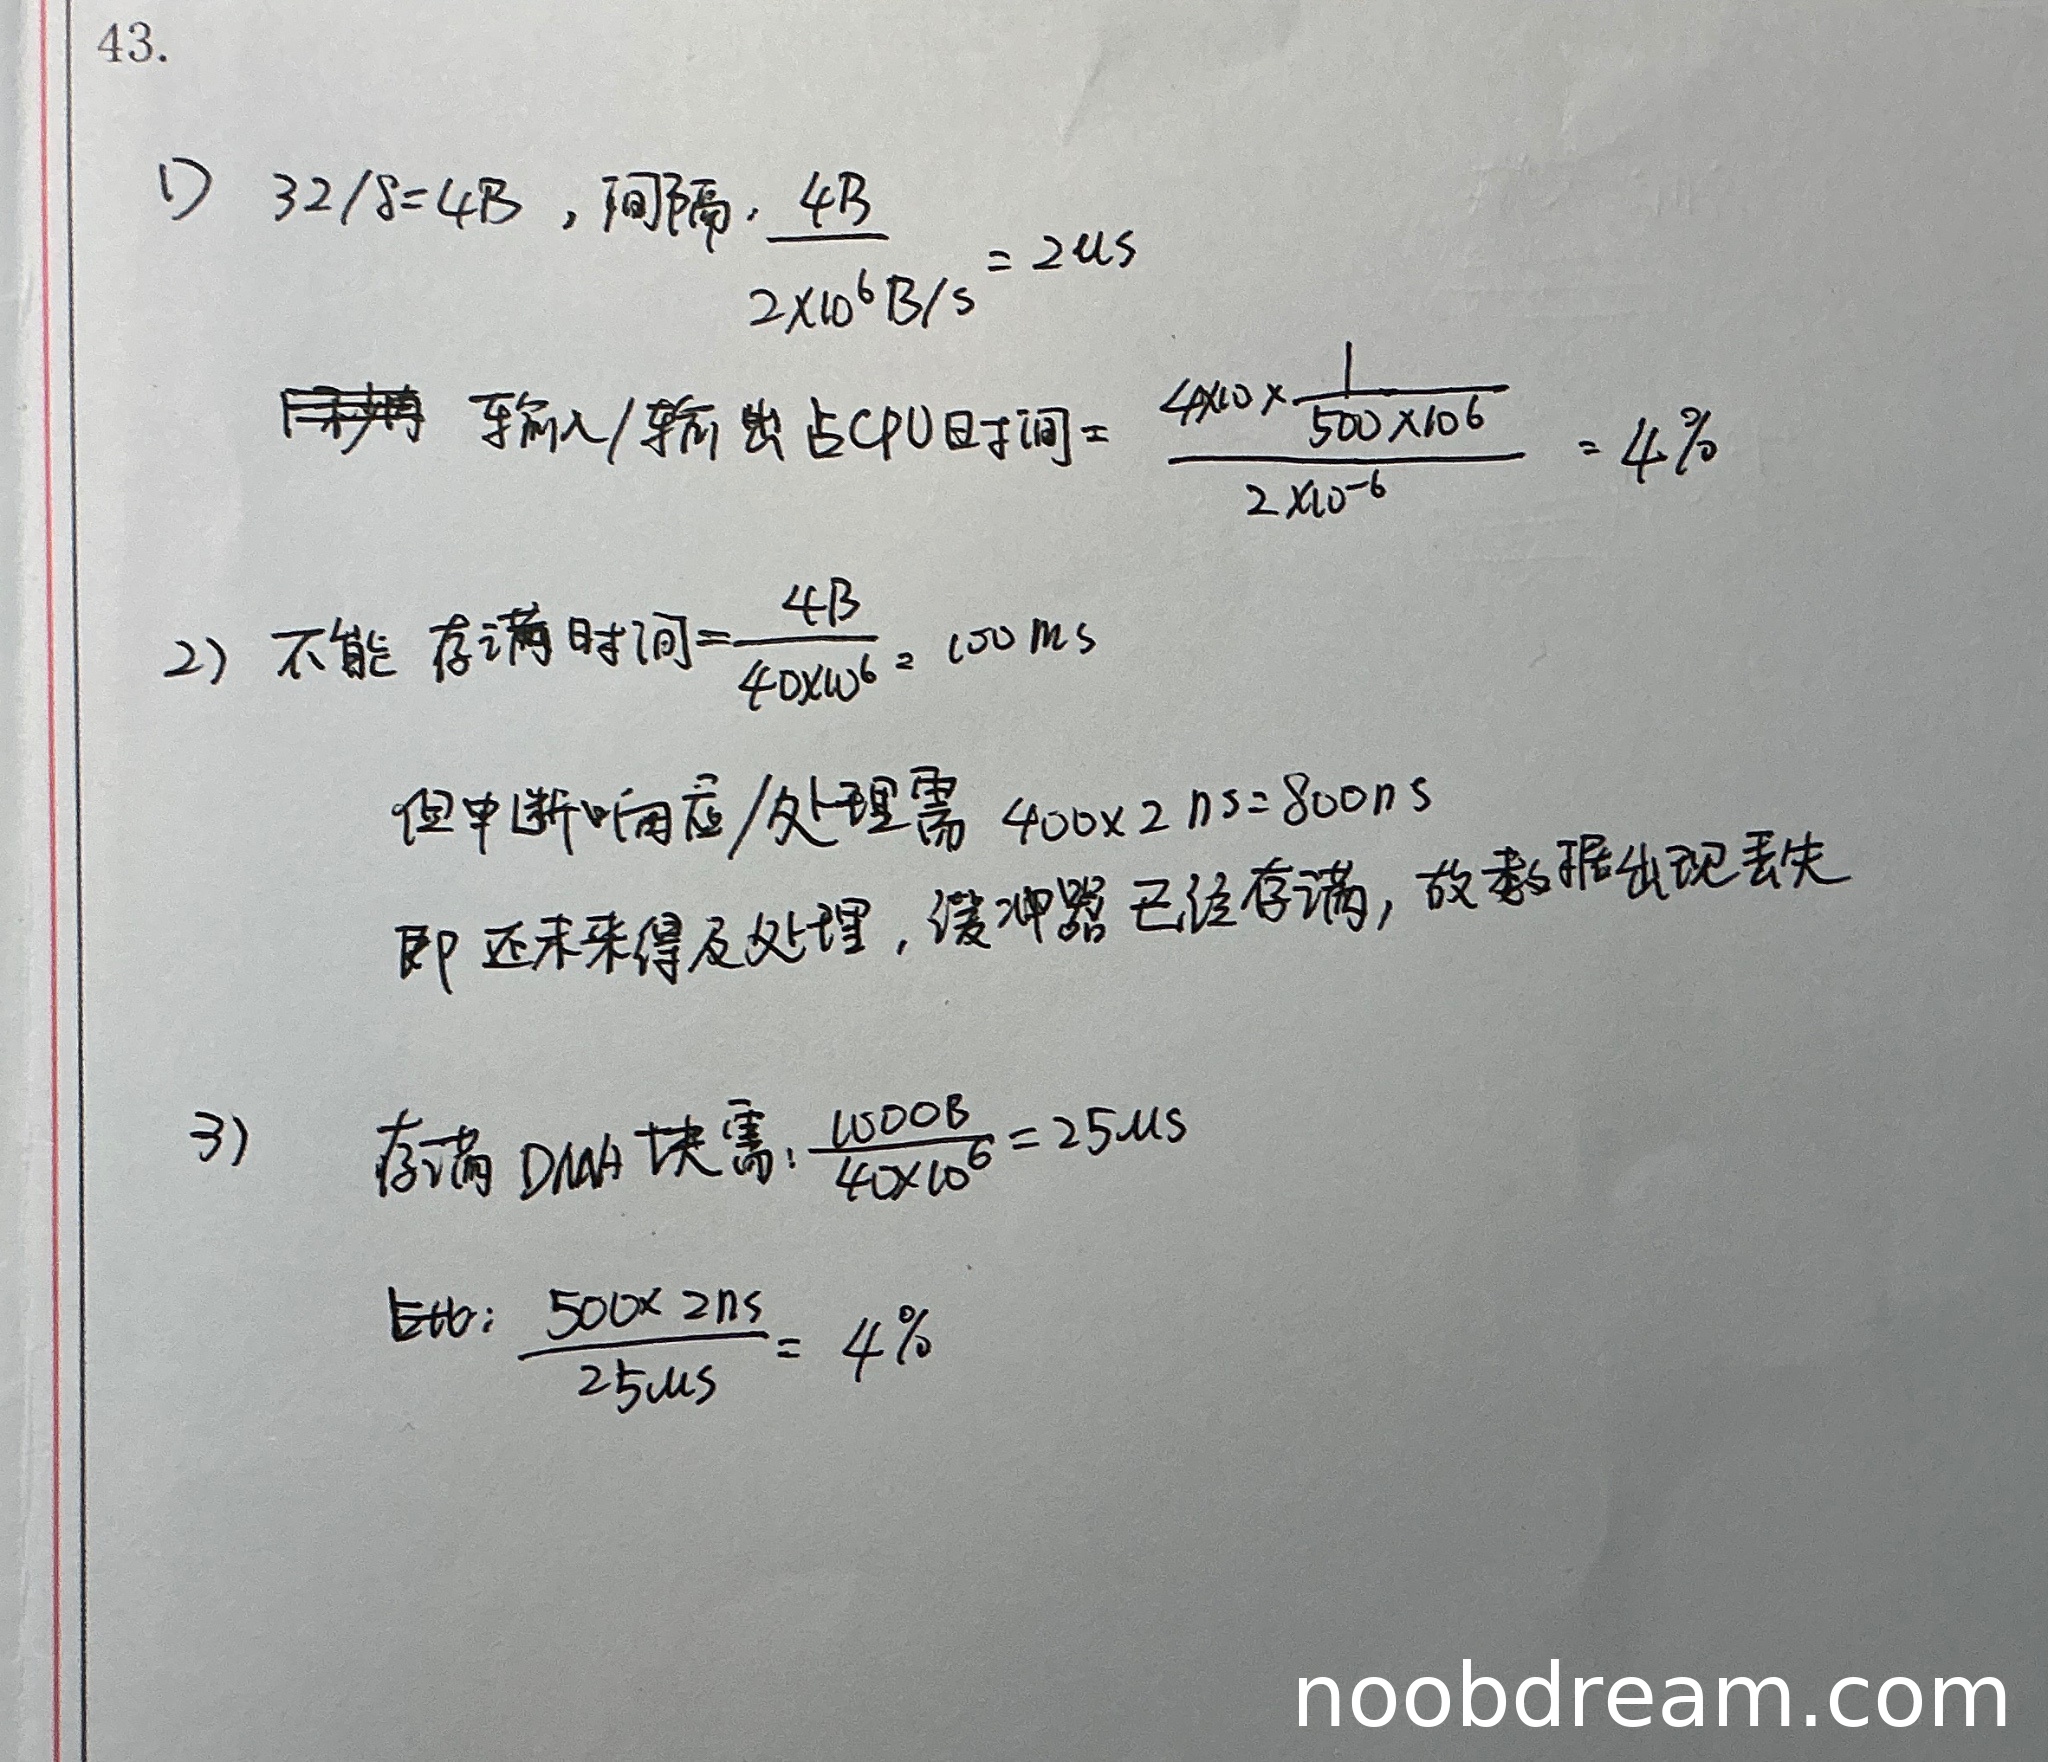 43.
1) 32/8=4B , 间隔. 4B / 2×10⁶B/s = 2us
输入/输出占CPU时间= 4×10×1/500×10⁶ / 2×10⁻⁶ = 4%
2) 不能 存满时间= 4B / 40×10⁶ = 100ms
但中断响应/处理需 400×2ns=800ns
即还未来得及处理, 缓冲器已经存满, 故数据出现丢失
3) 存满DMA块需: 1000B / 40×10⁶ = 25us
占比: 500×2ns / 25us = 4%
noobdream.com